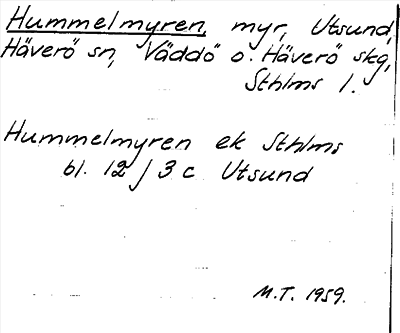 Hummelmyren, myr, Utsund,
Häverö sn, Väddö o. Häverö skg,
Sthlms l.
Hummelmyren ek Sthlms
bl. 12 j 3 c Utsund
M.T. 1959.